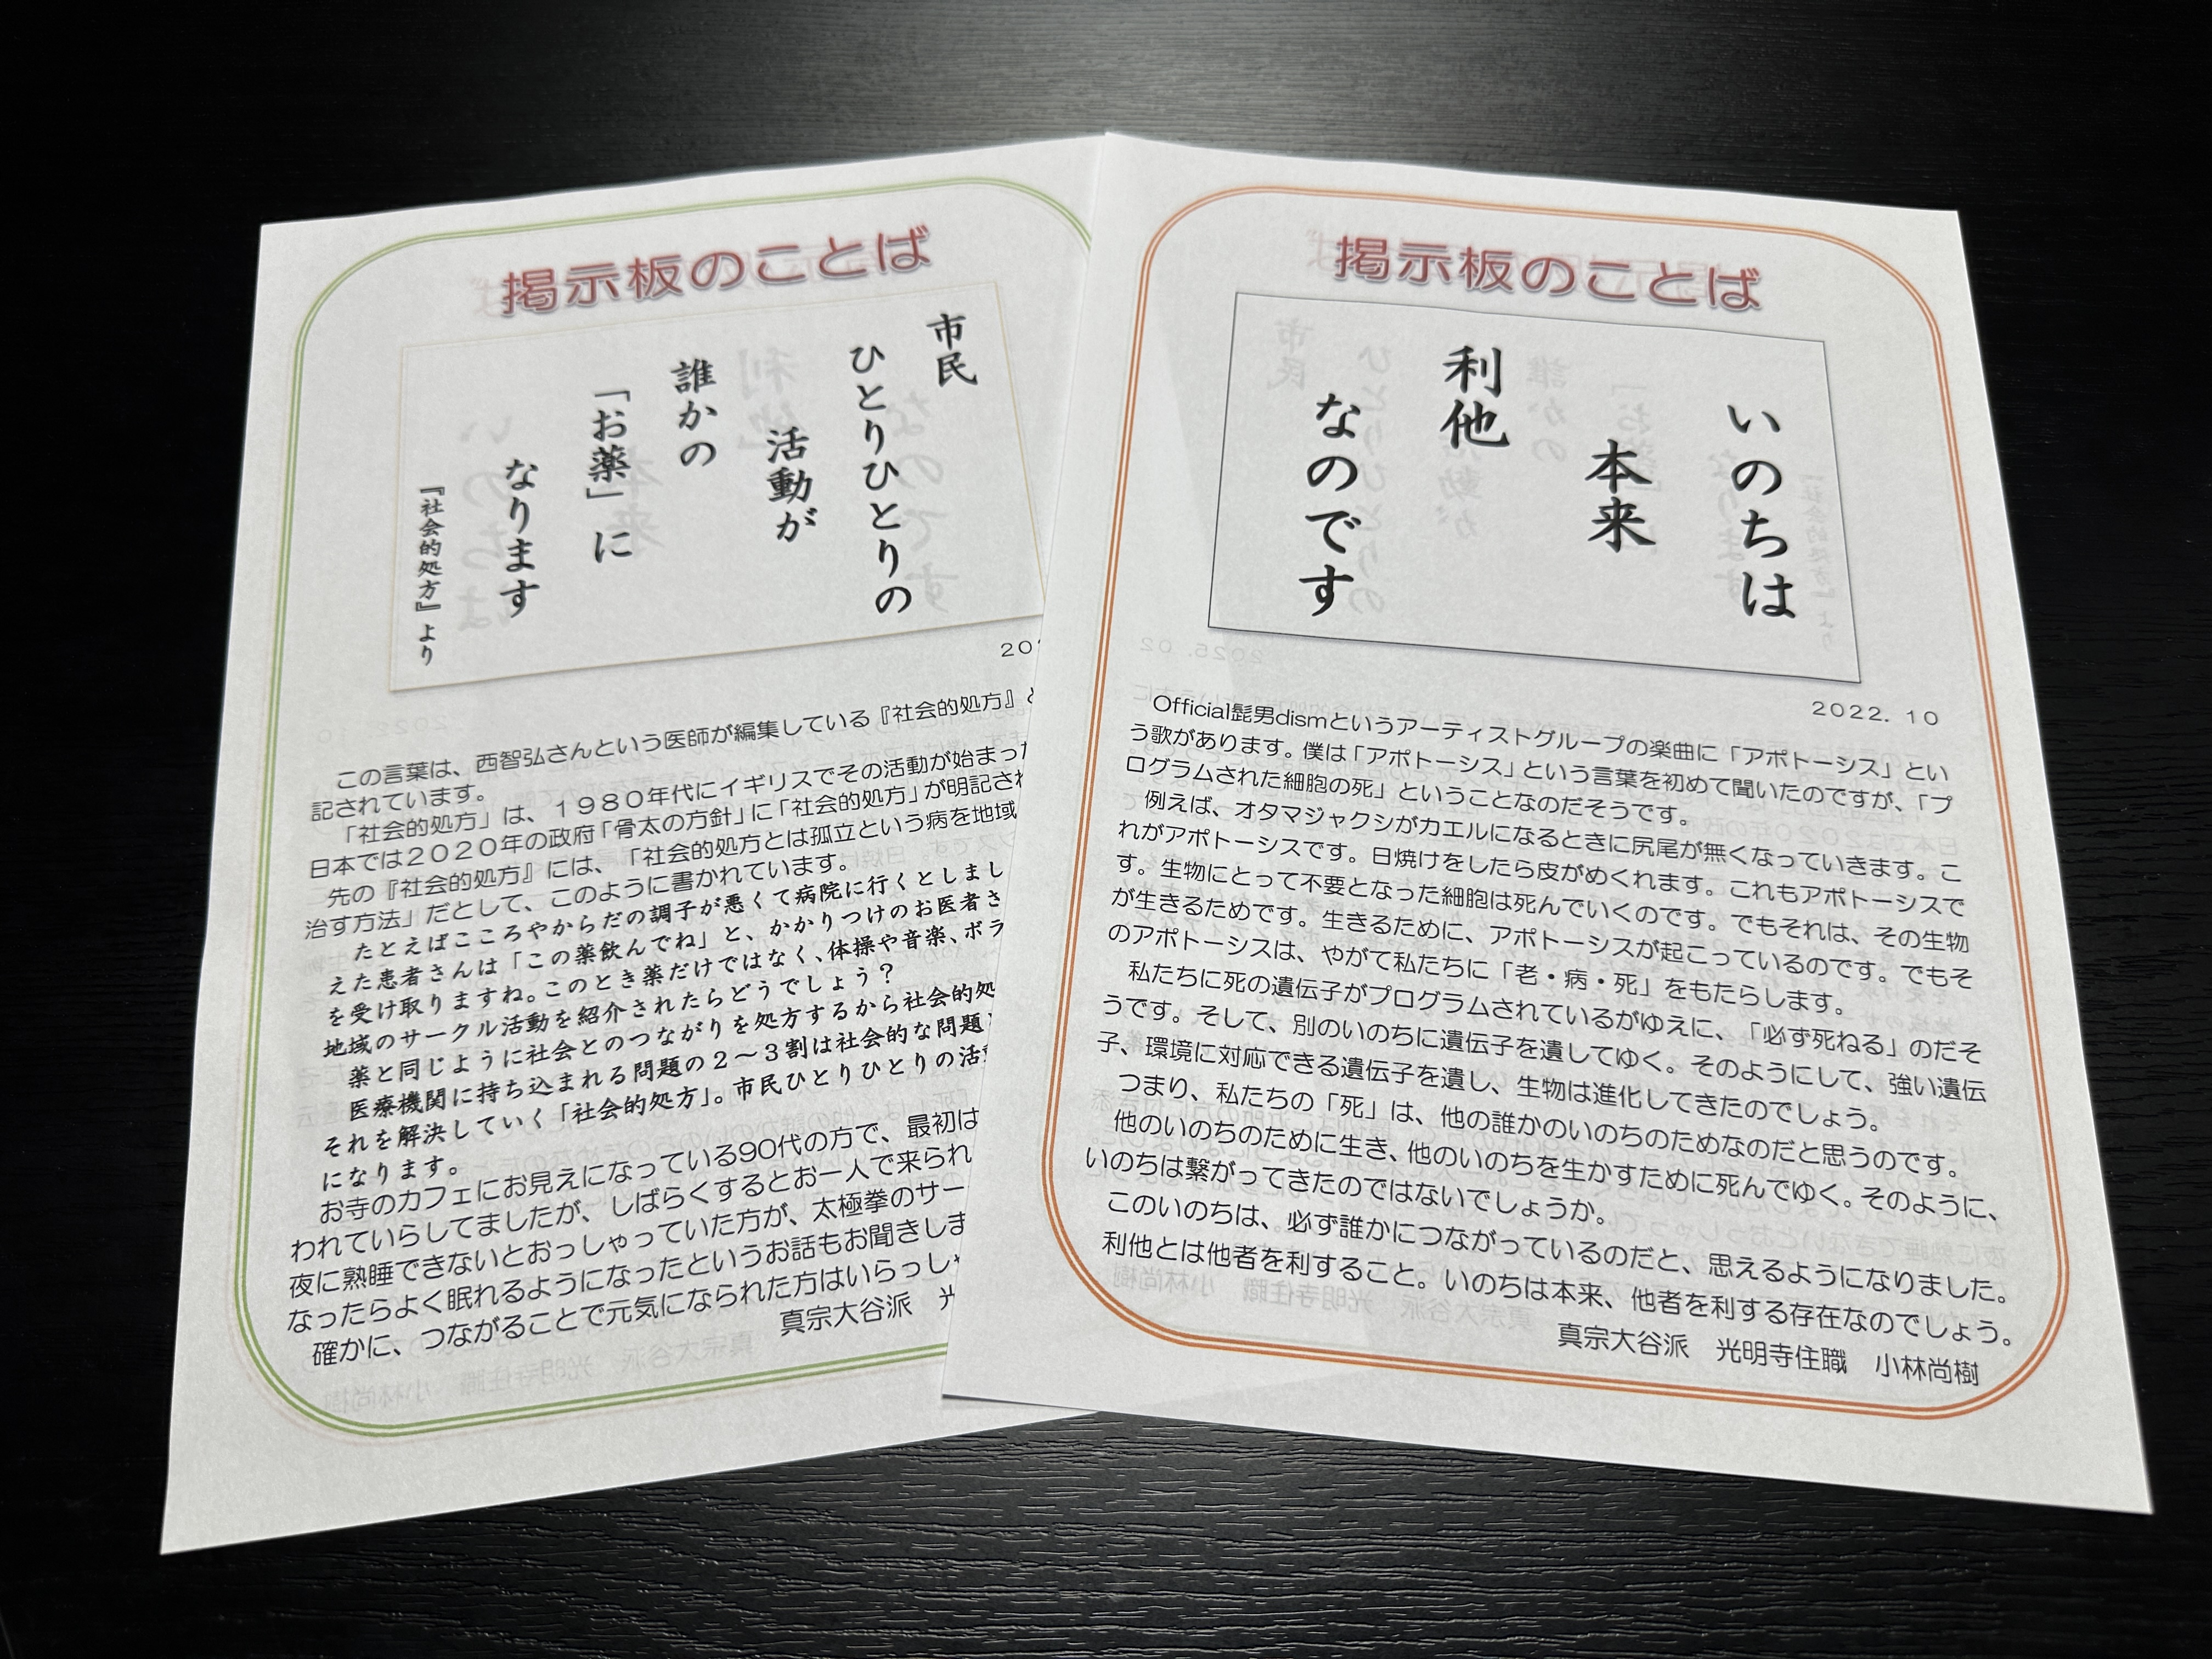 掲示板のことば
市民
ひとりひとりの
活動が
誰かの
「お薬」に
なります
『社会的処方』より
20
この言葉は、西智弘さんという医師が編集している『社会的処方』と
記されています。
「社会的処方」は、1980年代にイギリスでその活動が始まった
日本では2020年の政府「骨太の方針」に「社会的処方」が明記され
先の『社会的処方』には、「社会的処方とは孤立という病を地域
治す方法」だとして、このように書かれています。
たとえばこころやからだの調子が悪くて病院に行くとしまし
えた患者さんは「この薬飲んでね」と、かかりつけのお医者さ
を受け取りますね。このとき薬だけではなく、体操や音楽、ボラ
地域のサークル活動を紹介されたらどうでしょう?
薬と同じように社会とのつながりを処方するから社会的処
医療機関に持ち込まれる問題の2~3割は社会的な問題
それを解決していく「社会的処方」。市民ひとりひとりの活
になります。
お寺のカフェにお見えになっている90代の方で、最初は
われていらしてましたが、しばらくするとお一人で来られ
夜に熟睡できないとおっしゃっていた方が、太極拳のサー
なったらよく眠れるようになったというお話もお聞きしま
確かに、つながることで元気になられた方はいらっし
真宗大谷派
掲示板のことば
いのちは
本来
利他
なのです
2022.10
Official髭男dismというアーティストグループの楽曲に「アポトーシス」とい
う歌があります。僕は「アポトーシス」という言葉を初めて聞いたのですが、「プ
ログラムされた細胞の死」ということなのだそうです。
例えば、オタマジャクシがカエルになるときに尻尾が無くなっていきます。こ
れがアポトーシスです。日焼けをしたら皮がめくれます。これもアポトーシスで
す。生物にとって不要となった細胞は死んでいくのです。でもそれは、その生物
が生きるためです。生きるために、アポトーシスが起こっているのです。でもそ
のアポトーシスは、やがて私たちに「老・病・死」をもたらします。
私たちに死の遺伝子がプログラムされているがゆえに、「必ず死ねる」のだそ
うです。そして、別のいのちに遺伝子を遺してゆく。そのようにして、強い遺伝
子、環境に対応できる遺伝子を遺し、生物は進化してきたのでしょう。
つまり、私たちの「死」は、他の誰かのいのちのためなのだと思うのです。
他のいのちのために生き、他のいのちを生かすために死んでゆく。そのように、
いのちは繋がってきたのではないでしょうか。
このいのちは、必ず誰かにつながっているのだと、思えるようになりました。
利他とは他者を利すること。いのちは本来、他者を利する存在なのでしょう。
真宗大谷派 光明寺住職 小林尚樹